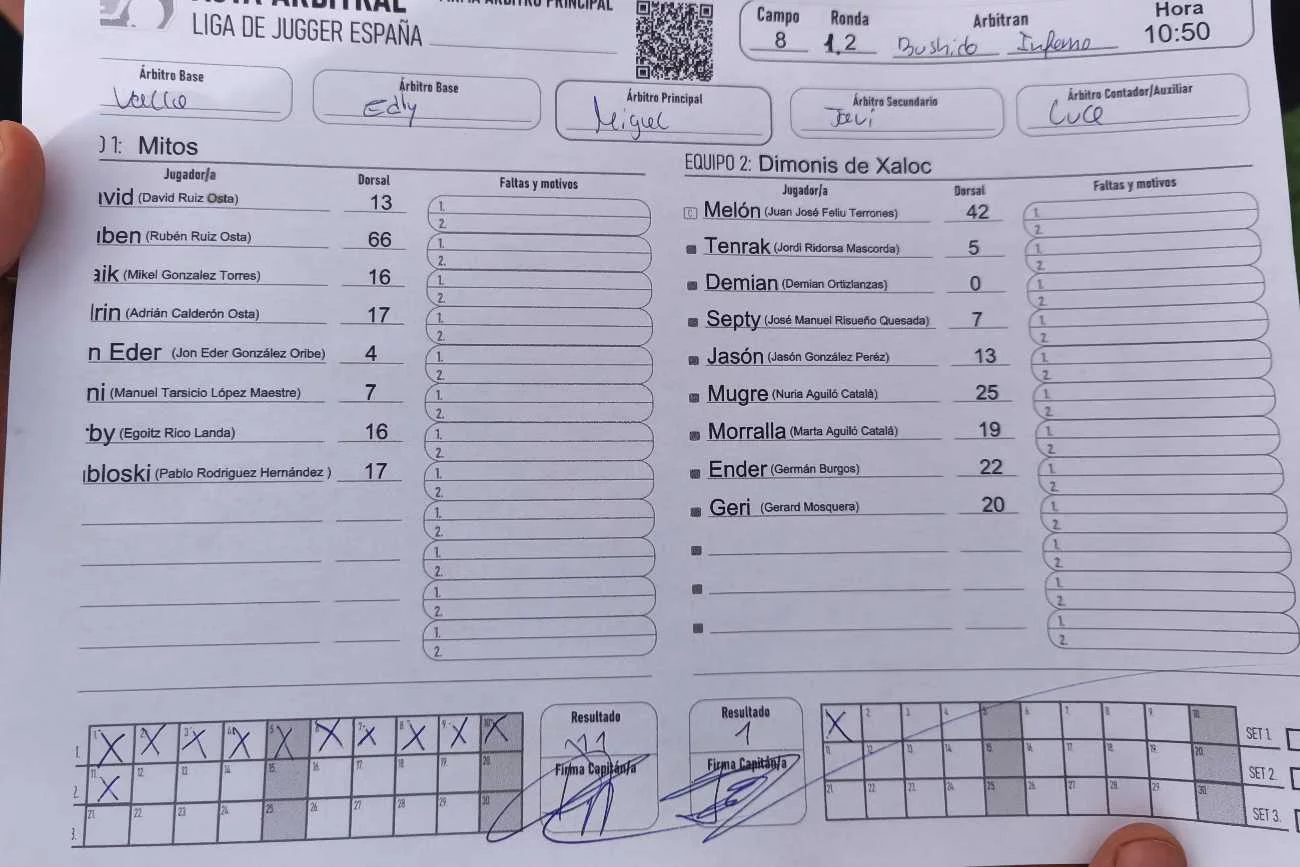 ACTA ARBITRAL
FIRMA ÁRBITRO PRINCIPAL
LIGA DE JUGGER ESPAÑA
Campo Ronda Arbitran Hora
8 1,2 Bushido Inferno 10:50
Árbitro Base Árbitro Base Árbitro Principal Árbitro Secundario Árbitro Contador/Auxiliar
Edly Miguel Javi Luce
01: Mitos
Jugador/a Dorsal Faltas y motivos
vid (David Ruiz Osta) 13 1. 2.
ben (Rubén Ruiz Osta) 66 1. 2.
aik (Mikel Gonzalez Torres) 16 1. 2.
lrin (Adrián Calderón Osta) 17 1. 2.
n Eder (Jon Eder González Oribe) 4 1. 2.
ni (Manuel Tarsicio López Maestre) 7 1. 2.
by (Egoitz Rico Landa) 16 1. 2.
bloski (Pablo Rodriguez Hernández ) 17 1. 2.
1. 2.
1. 2.
1. 2.
1. 2.
EQUIPO 2: Dimonis de Xaloc
Jugador/a Dorsal Faltas y motivos
C Melón (Juan José Feliu Terrones) 42 1. 2.
Tenrak (Jordi Ridorsa Mascorda) 5 1. 2.
Demian (Demian Ortizlanzas) 0 1. 2.
Septy (José Manuel Risueño Quesada) 7 1. 2.
Jasón (Jasón González Peréz) 13 1. 2.
Mugre (Nuria Aguiló Català) 25 1. 2.
Morralla (Marta Aguiló Català) 19 1. 2.
Ender (Germán Burgos) 22 1. 2.
Geri (Gerard Mosquera) 20 1. 2.
1. 2.
1. 2.
1. 2.
1. 1 X 2 X 3 X 4 X 5 X 6 X 7 X 8 X 9 X 10 X
2. 11 X 12 13 14 15 16 17 18 19 20
3. 21 22 23 24 25 26 27 28 29 30
Resultado
11
Firma Capitán/a
Resultado
1
Firma Capitán/a
1 X 2 3 4 5 6 7 8 9 10 SET 1.
11 12 13 14 15 16 17 18 19 20 SET 2.
21 22 23 24 25 26 27 28 29 30 SET 3.